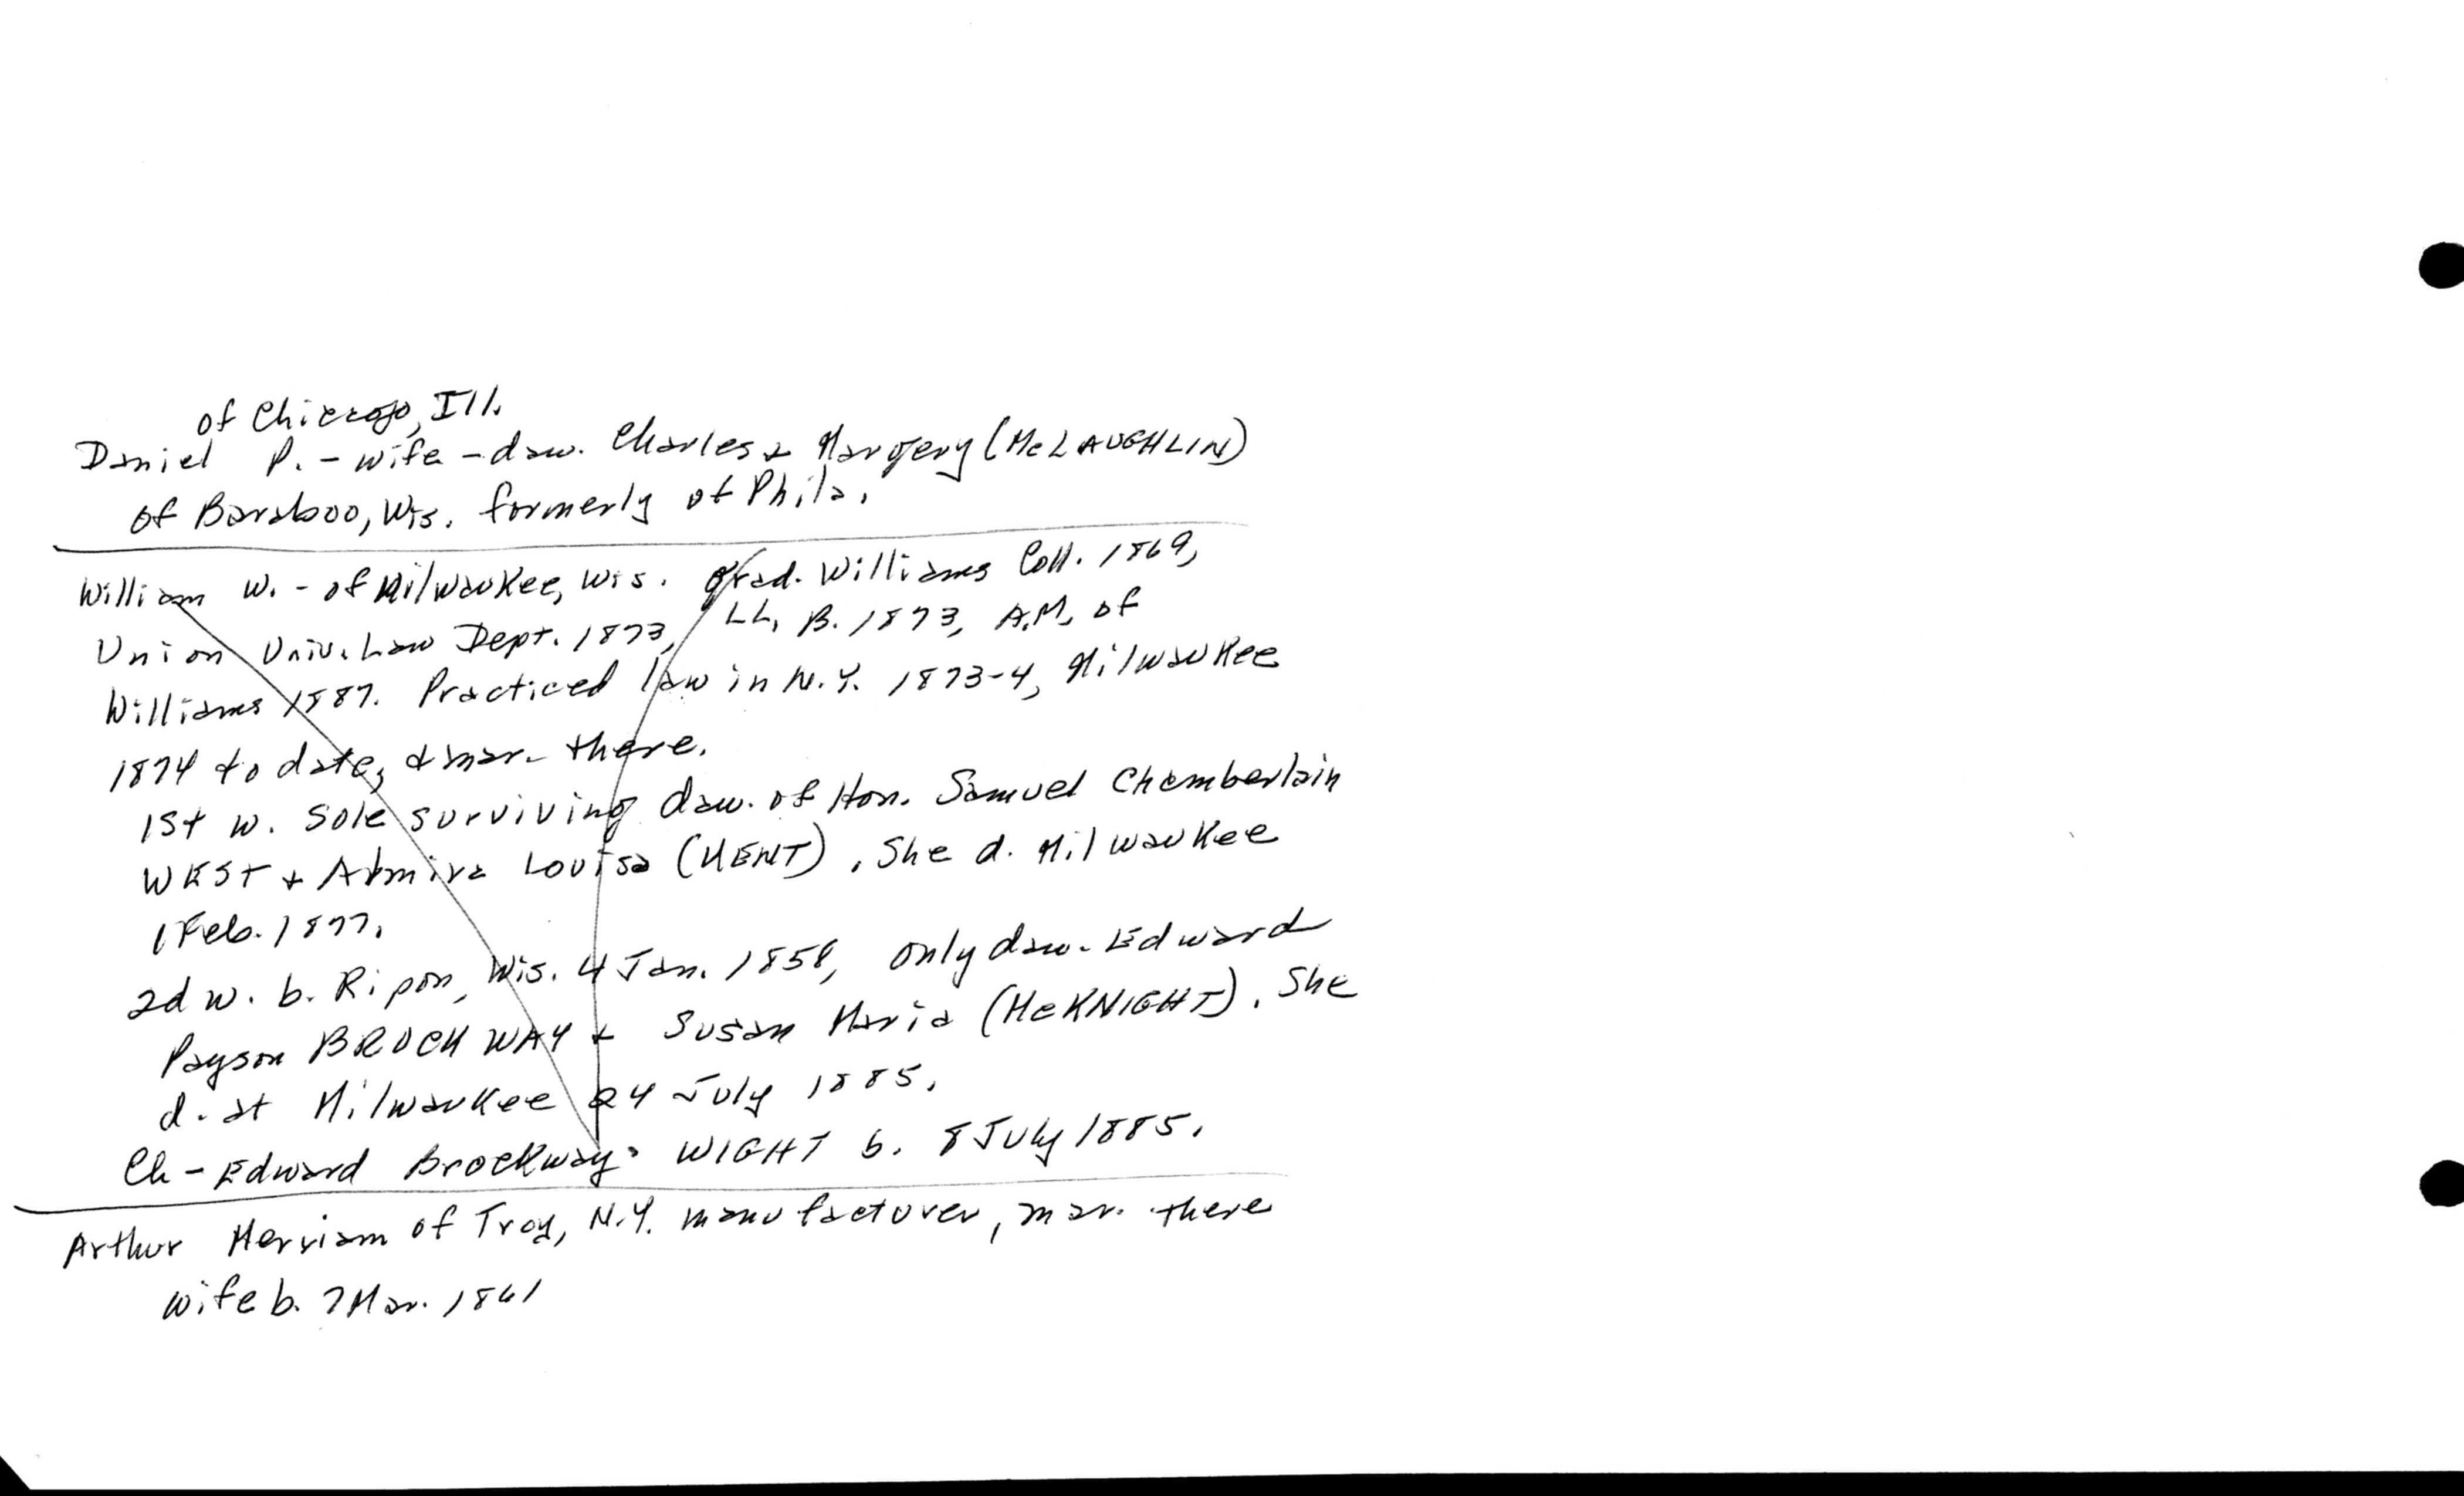 of Chicago, Ill.
Daniel P. - wife - dau. Charles & Margery (McLAUGHLIN)
of Baraboo, Wis. formerly of Phila.
William W. - of Milwaukee, Wis. grad. Williams Coll. 1869,
Union Univ. Law Dept. 1873, LL. B. 1873, A.M. of
Williams 1887. Practiced law in N.Y. 1873-4, Milwaukee
1874 to date, & mar. there.
1st w. Sole surviving dau. of Hon. Samuel Chamberlain
WEST & Admira Louisa (KENT). She d. Milwaukee
1 Feb. 1877.
2d w. b. Ripon, Wis. 4 Jan. 1858, only dau. Edward
Payson BROCKWAY & Susan Maria (McKNIGHT). She
d. at Milwaukee 24 July 1885.
Ch - Edward Brockway WIGHT b. 8 July 1885.
Arthur Merriam of Troy, N.Y. manufacturer, mar. there
wife b. 7 Mar. 1861